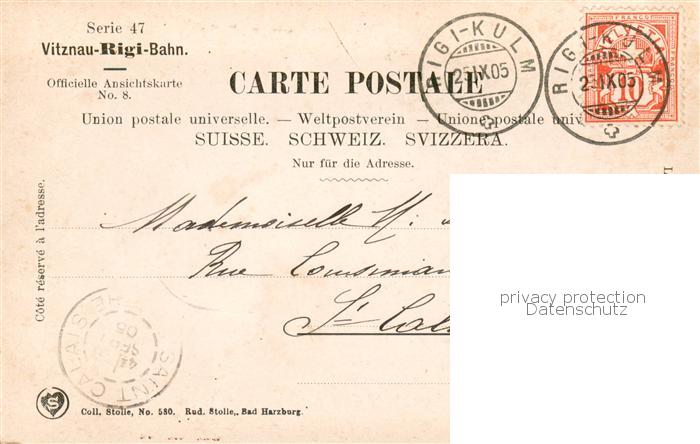 Serie 47
Vitznau-Rigi-Bahn.
Officielle Ansichtskarte
No. 8.
CARTE POSTALE
RIGI-KULM
2 IX 05
RIGI-KULM
2 IX 05
FRANCO
HELVETIA
10
Union postale universelle. — Weltpostverein — Unione postale univ
SUISSE. SCHWEIZ. SVIZZERA.
Nur für die Adresse.
Côté réservé à l'adresse.
Mademoiselle M.
Rue
St Cal
privacy protection
Datenschutz
SAINT CALAIS
05
S
Coll. Stolle, No. 580. Rud. Stolle, Bad Harzburg.